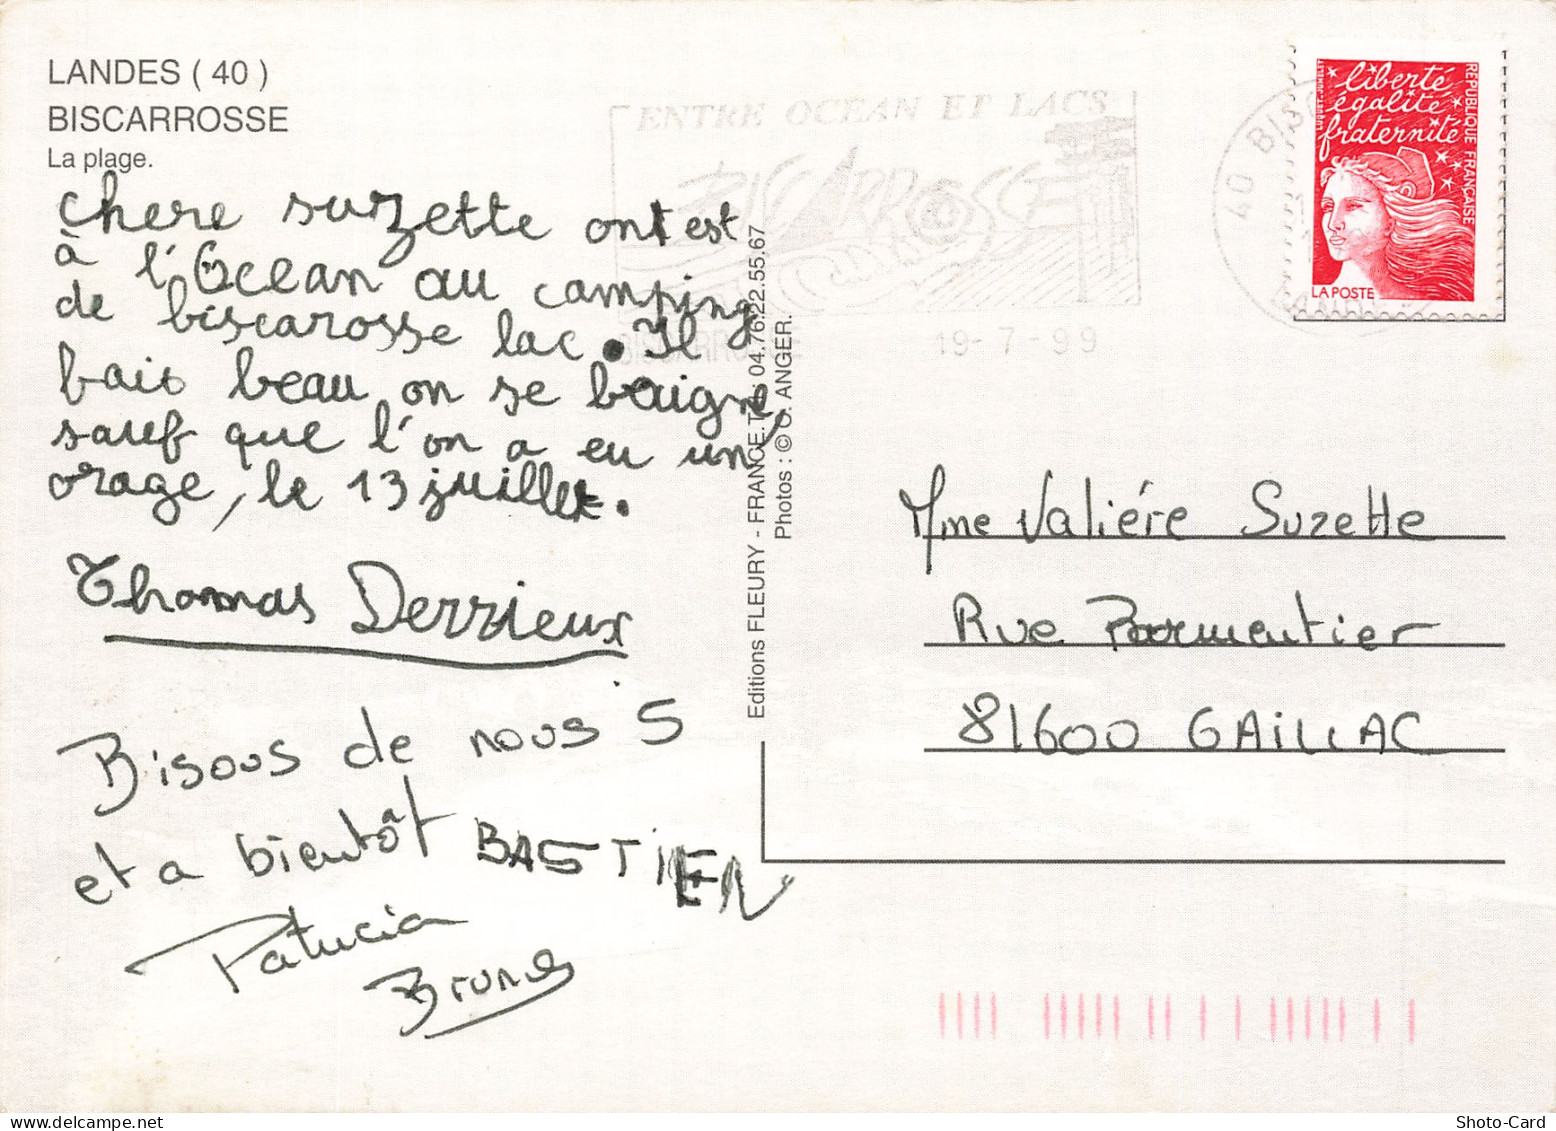 LANDES ( 40 )
BISCARROSSE
La plage.
chere suzette ont est
à l'Ocean au camping
de biscarosse lac. Il
fais beau on se baigne
sauf que l'on a eu un
orage, le 13 juillet.
Thomas Derrieux
Bisous de nous 5
et a bientôt BASTIEN
Patricia
Bruno
Editions FLEURY - FRANCE. 04.76.22.55.67
Photos : © O. ANGER.
ENTRE OCEAN ET LACS
BISCARROSSE
BISCARROSSE
19-7-99
40 BISC
liberté
égalité
fraternité
RÉPUBLIQUE FRANÇAISE
LA POSTE
Mme Valiére Suzette
Rue Parmentier
81600 GAILLAC
Shoto-Card